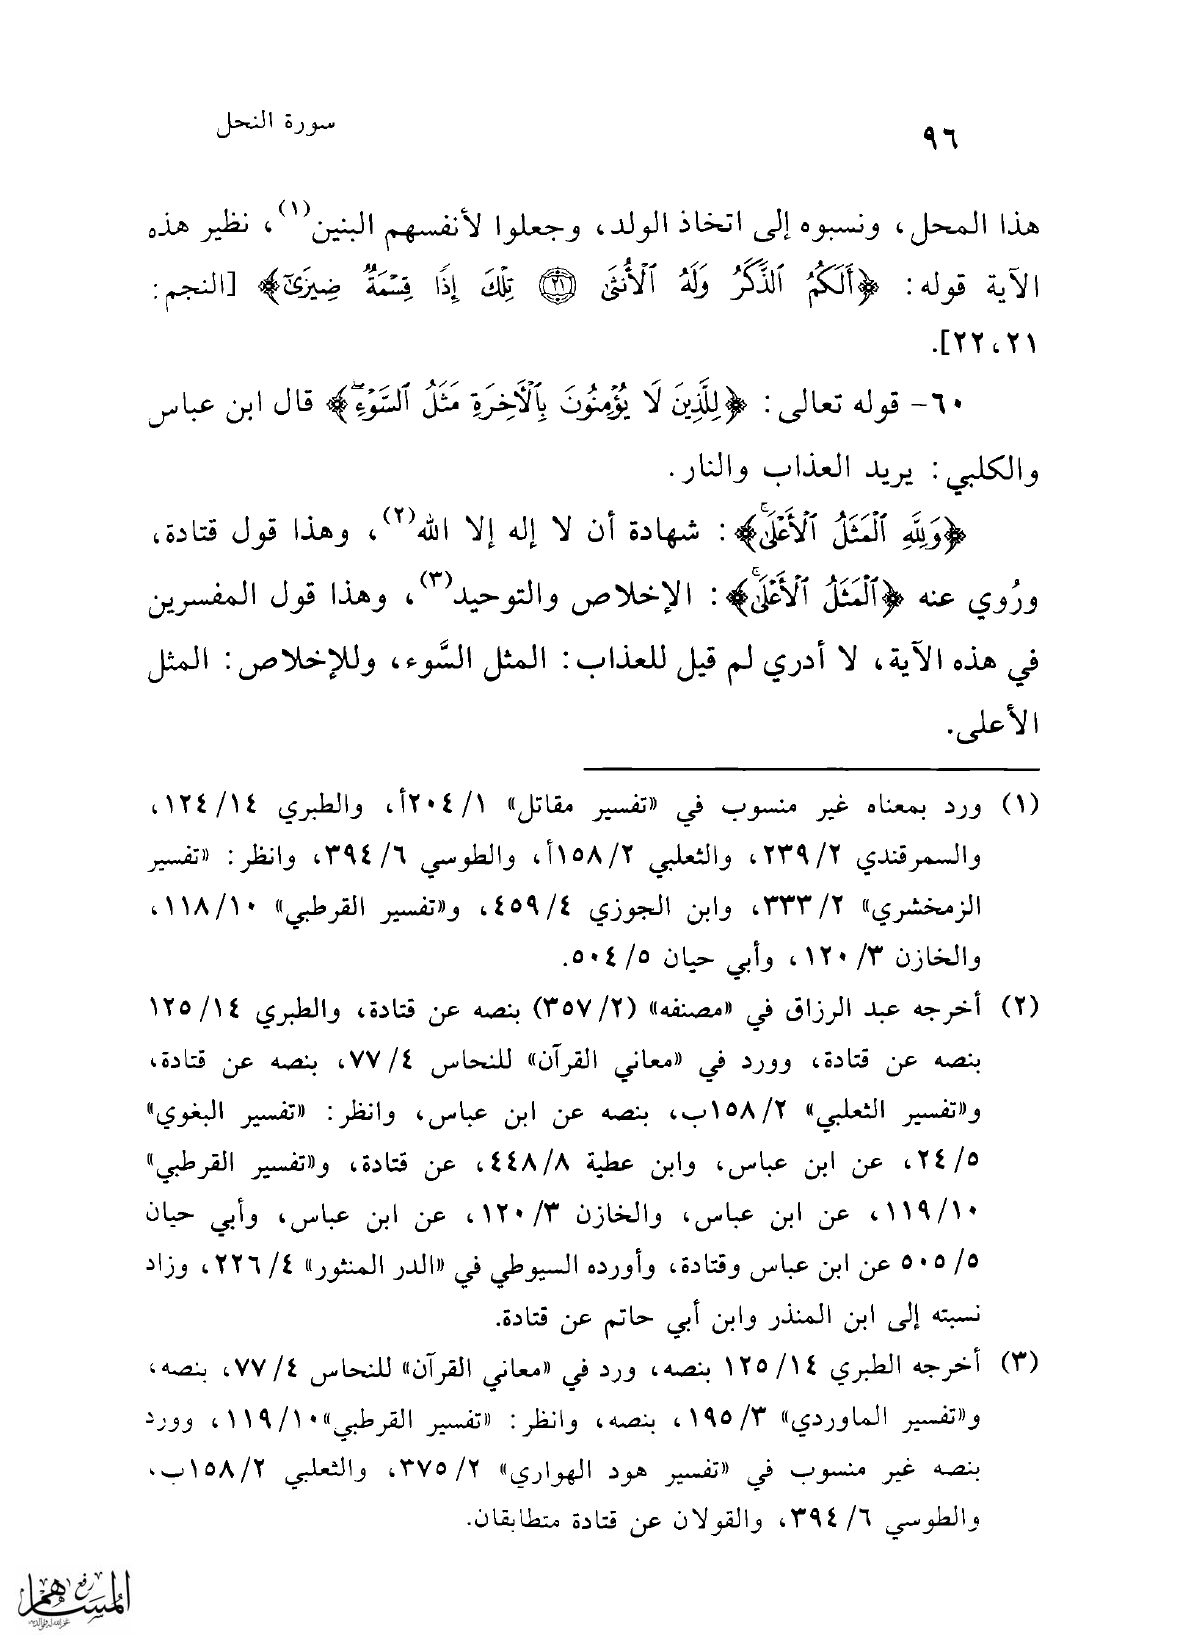 ٩٦
سورة النحل
هذا المحل، ونسبوه إلى اتخاذ الولد، وجعلوا لأنفسهم البنين(١)، نظير هذه
الآية قوله: ﴿أَلَكُمُ الذَّكَرُ وَلَهُ الْأُنثَىٰ ۝٢١ تِلْكَ إِذًا قِسْمَةٌ ضِيزَىٰ﴾ [النجم:
٢١، ٢٢].
٦٠- قوله تعالى: ﴿لِلَّذِينَ لَا يُؤْمِنُونَ بِالْآخِرَةِ مَثَلُ السَّوْءِ ۖ﴾ قال ابن عباس
والكلبي: يريد العذاب والنار.
﴿وَلِلَّهِ الْمَثَلُ الْأَعْلَىٰ ۚ﴾: شهادة أن لا إله إلا الله(٢)، وهذا قول قتادة،
ورُوي عنه ﴿الْمَثَلُ الْأَعْلَىٰ ۚ﴾: الإخلاص والتوحيد(٣)، وهذا قول المفسرين
في هذه الآية، لا أدري لم قيل للعذاب: المثل السَّوء، وللإخلاص: المثل
الأعلى.
(١) ورد بمعناه غير منسوب في «تفسير مقاتل» ١/ ٢٠٤أ، والطبري ١٤/ ١٢٤،
والسمرقندي ٢/ ٢٣٩، والثعلبي ٢/ ١٥٨أ، والطوسي ٦/ ٣٩٤، وانظر: «تفسير
الزمخشري» ٢/ ٣٣٣، وابن الجوزي ٤/ ٤٥٩، و«تفسير القرطبي» ١٠/ ١١٨،
والخازن ٣/ ١٢٠، وأبي حيان ٥/ ٥٠٤.
(٢) أخرجه عبد الرزاق في «مصنفه» (٢/ ٣٥٧) بنصه عن قتادة، والطبري ١٤/ ١٢٥
بنصه عن قتادة، وورد في «معاني القرآن» للنحاس ٤/ ٧٧، بنصه عن قتادة،
و«تفسير الثعلبي» ٢/ ١٥٨ب، بنصه عن ابن عباس، وانظر: «تفسير البغوي»
٥/ ٢٤، عن ابن عباس، وابن عطية ٨/ ٤٤٨، عن قتادة، و«تفسير القرطبي»
١٠/ ١١٩، عن ابن عباس، والخازن ٣/ ١٢٠، عن ابن عباس، وأبي حيان
٥/ ٥٠٥ عن ابن عباس وقتادة، وأورده السيوطي في «الدر المنثور» ٤/ ٢٢٦، وزاد
نسبته إلى ابن المنذر وابن أبي حاتم عن قتادة.
(٣) أخرجه الطبري ١٤/ ١٢٥ بنصه، ورد في «معاني القرآن» للنحاس ٤/ ٧٧، بنصه،
و«تفسير الماوردي» ٣/ ١٩٥، بنصه، وانظر: «تفسير القرطبي»١٠/ ١١٩، وورد
بنصه غير منسوب في «تفسير هود الهواري» ٢/ ٣٧٥، والثعلبي ٢/ ١٥٨ب،
والطوسي ٦/ ٣٩٤، والقولان عن قتادة متطابقان.